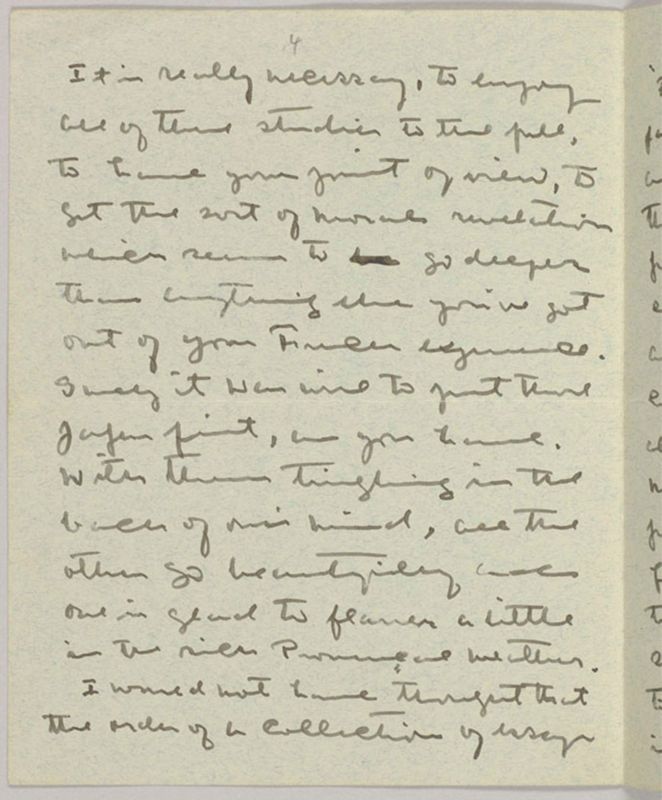 4
It is really necessary, to enjoy
all of these studies to the full,
to have your point of view, to
get the sort of moral revelation
which seems to go deeper
than anything else you've got
out of your French experience.
Surely it was wise to put
first, as you have.
With them tingling in the
back of one's mind, all the
others go beautifully and
one is glad to flaner a little
in the rich Provençal weather.
I would not have thought that
the order of a collection of essays